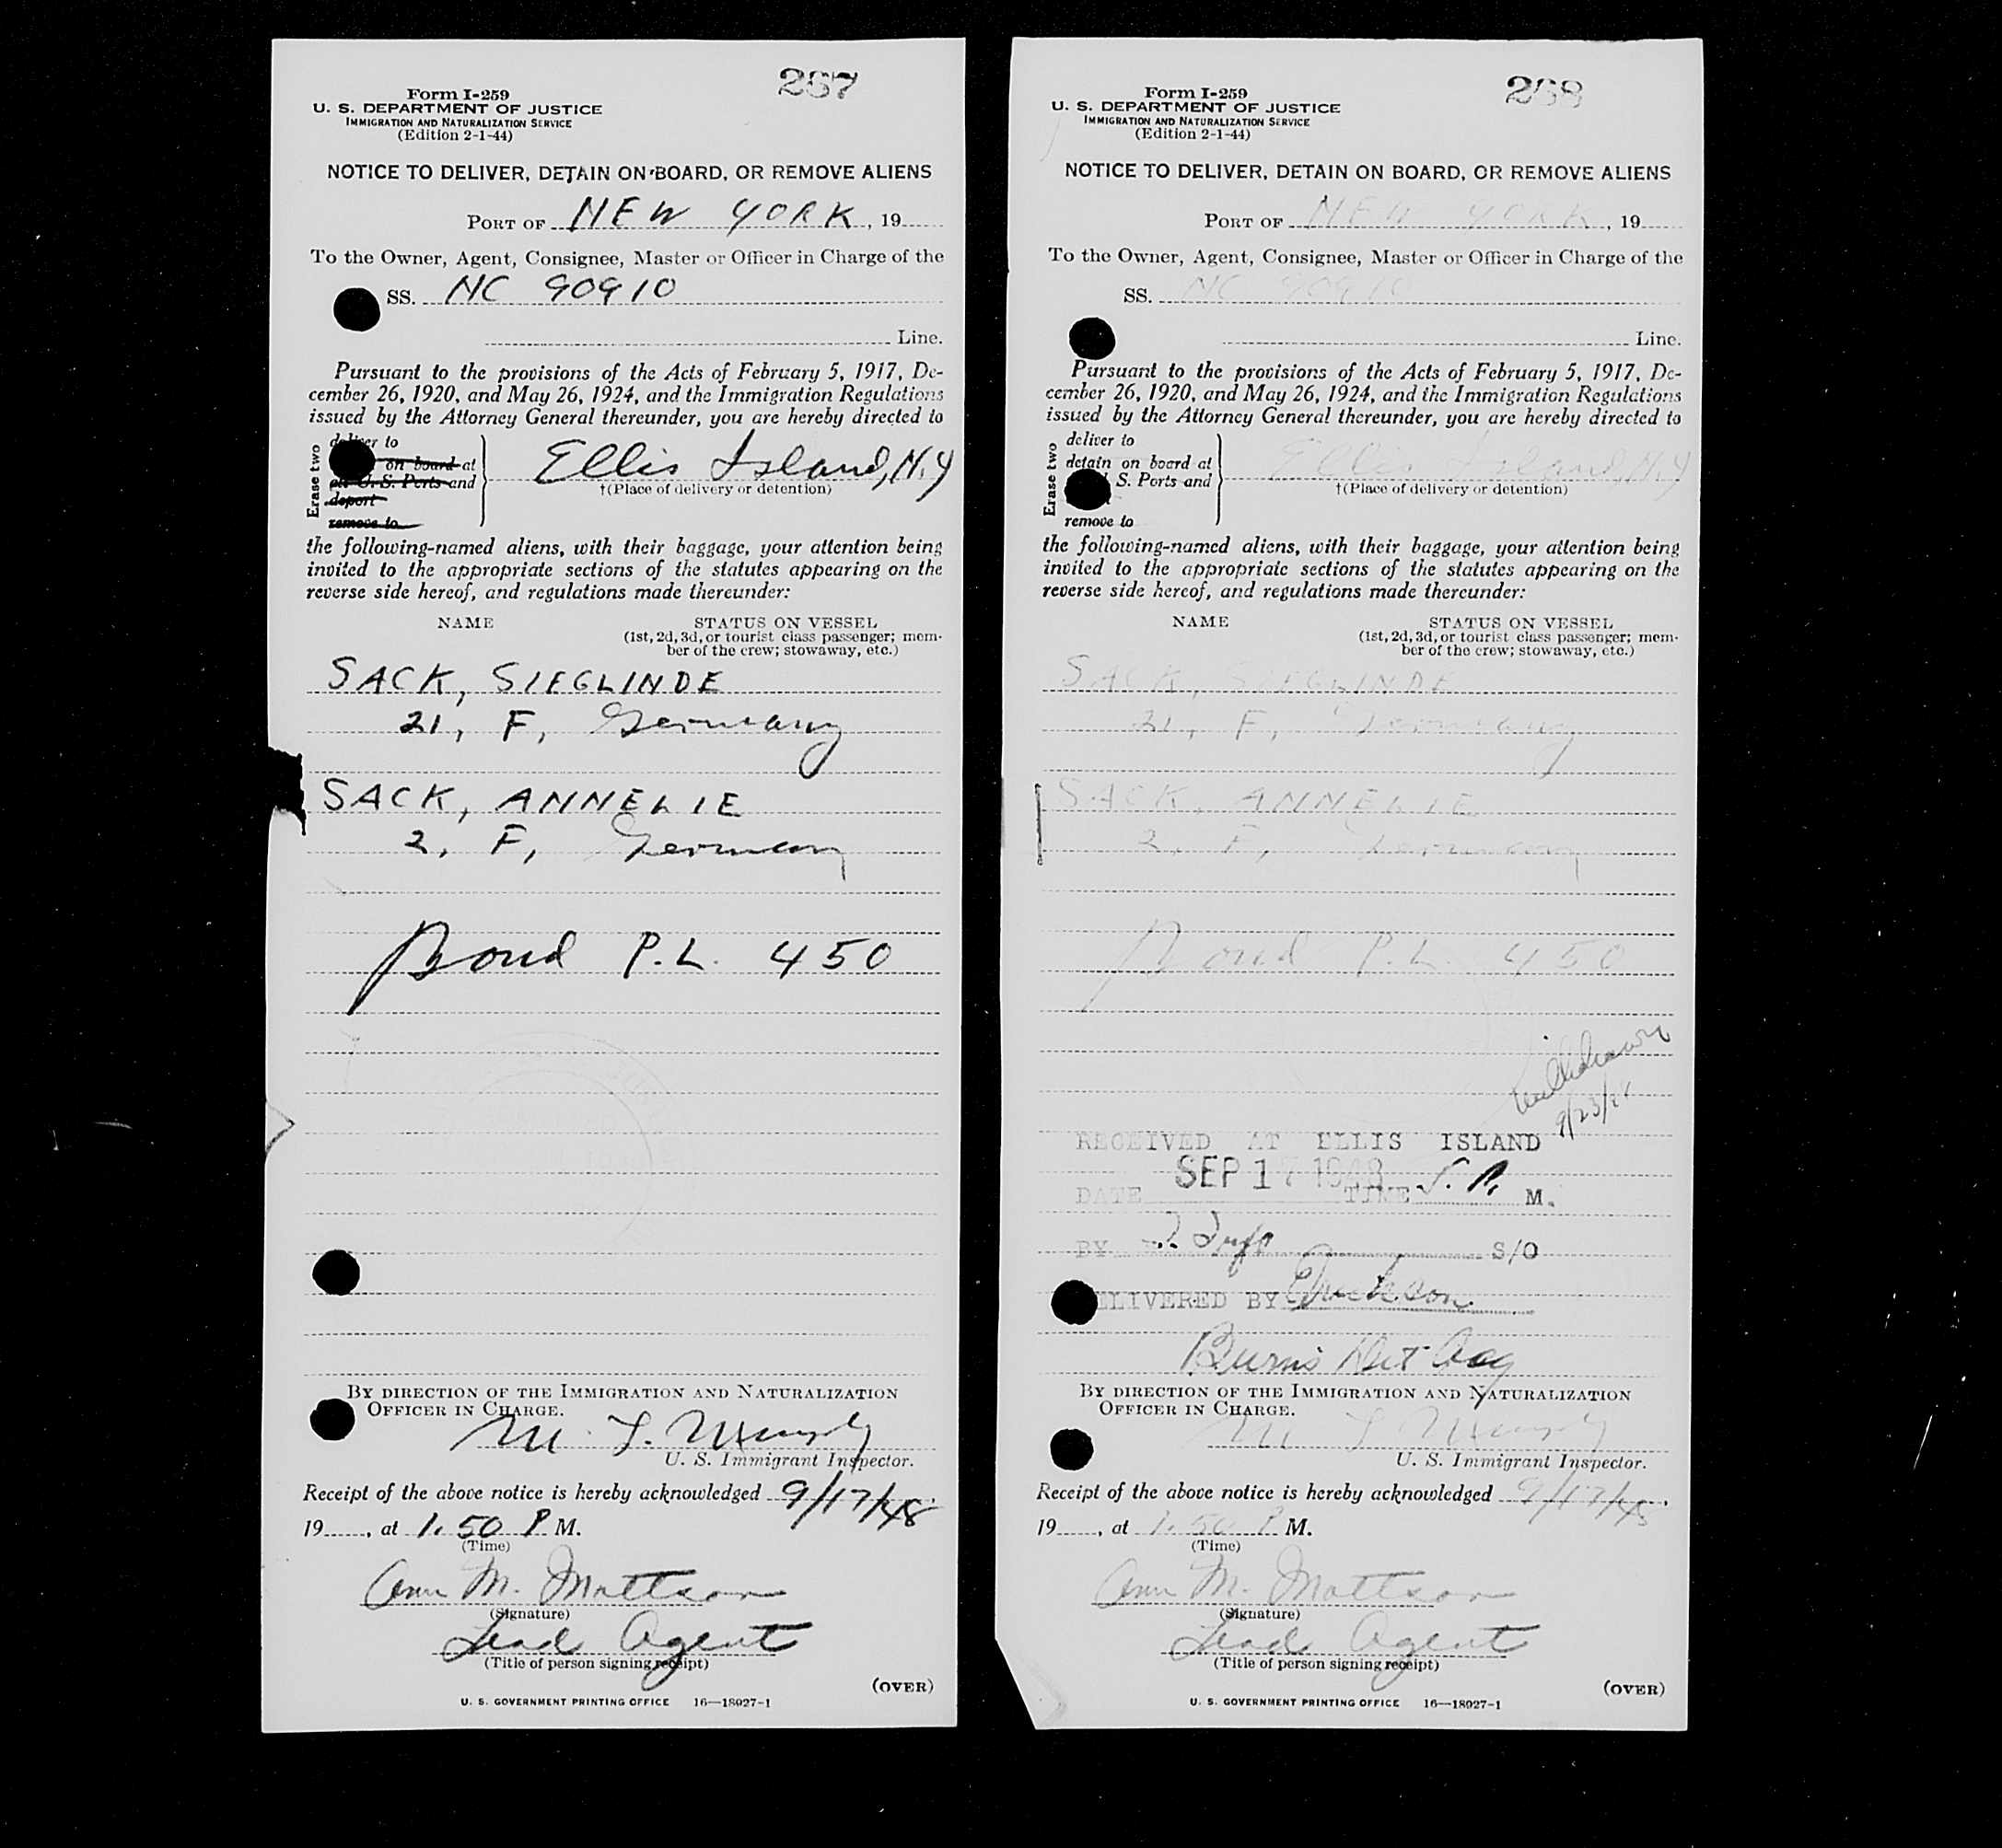 267
Form I-259
U. S. DEPARTMENT OF JUSTICE
IMMIGRATION AND NATURALIZATION SERVICE
(Edition 2-1-44)
NOTICE TO DELIVER, DETAIN ON BOARD, OR REMOVE ALIENS
PORT OF NEW YORK, 19
To the Owner, Agent, Consignee, Master or Officer in Charge of the
SS. NC 90910
Line.
Pursuant to the provisions of the Acts of February 5, 1917, De-
cember 26, 1920, and May 26, 1924, and the Immigration Regulations
issued by the Attorney General thereunder, you are hereby directed to
Erase two
deliver to
on board at
U. S. Ports and
deport
remove to
Ellis Island, N.Y
†(Place of delivery or detention)
the following-named aliens, with their baggage, your attention being
invited to the appropriate sections of the statutes appearing on the
reverse side hereof, and regulations made thereunder:
NAME STATUS ON VESSEL
(1st, 2d, 3d, or tourist class passenger; mem-
ber of the crew; stowaway, etc.)
SACK, SIEGLINDE
21, F, Germany
SACK, ANNELIE
2, F, Germany
Bond P.L. 450
BY DIRECTION OF THE IMMIGRATION AND NATURALIZATION
OFFICER IN CHARGE.
U. S. Immigrant Inspector.
Receipt of the above notice is hereby acknowledged 9/17/48
19, at 1.50 P M.
(Time)
Ann M. Mattson
(Signature)
Lead Agent
(Title of person signing receipt)
(OVER)
U. S. GOVERNMENT PRINTING OFFICE 16—18027-1
268
Form I-259
U. S. DEPARTMENT OF JUSTICE
IMMIGRATION AND NATURALIZATION SERVICE
(Edition 2-1-44)
NOTICE TO DELIVER, DETAIN ON BOARD, OR REMOVE ALIENS
PORT OF NEW YORK, 19
To the Owner, Agent, Consignee, Master or Officer in Charge of the
SS. NC 90910
Line.
Pursuant to the provisions of the Acts of February 5, 1917, De-
cember 26, 1920, and May 26, 1924, and the Immigration Regulations
issued by the Attorney General thereunder, you are hereby directed to
Erase two
deliver to
detain on board at
S. Ports and
remove to
Ellis Island, N.Y
†(Place of delivery or detention)
the following-named aliens, with their baggage, your attention being
invited to the appropriate sections of the statutes appearing on the
reverse side hereof, and regulations made thereunder:
NAME STATUS ON VESSEL
(1st, 2d, 3d, or tourist class passenger; mem-
ber of the crew; stowaway, etc.)
SACK, SIEGLINDE
21, F, Germany
SACK, ANNELIE
2, F, Germany
Bond P.L. 450
withdrawn
RECEIVED AT ELLIS ISLAND
DATE SEP 17 1948 TIME M.
BY S/O
DELIVERED BY Erickson
Burns Det Agy
BY DIRECTION OF THE IMMIGRATION AND NATURALIZATION
OFFICER IN CHARGE.
U. S. Immigrant Inspector.
Receipt of the above notice is hereby acknowledged 9/17/48
19, at 1.50 P M.
(Time)
Ann M. Mattson
(Signature)
Lead Agent
(Title of person signing receipt)
(OVER)
U. S. GOVERNMENT PRINTING OFFICE 16—18027-1